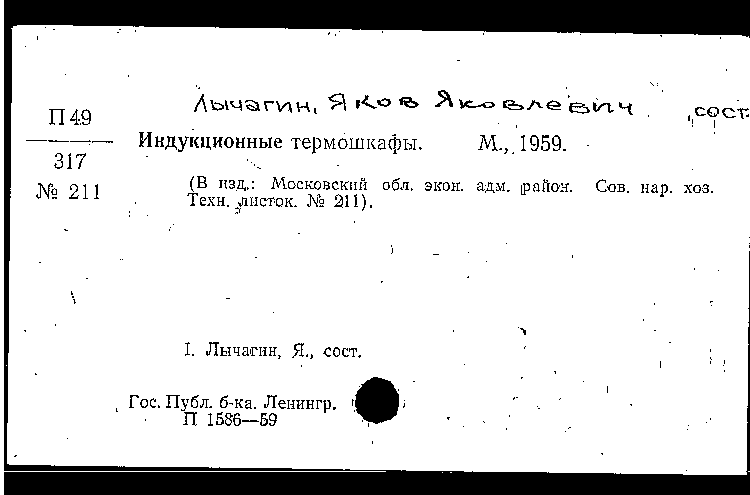 Лычагин, Яков Яковлевич, сост.
П 49
317
№ 211
Индукционные термошкафы. М., 1959.
(В изд.: Московский обл. экон. адм. район. Сов. нар. хоз.
Техн. листок. № 211).
I. Лычагин, Я., сост.
Гос. Публ. б-ка. Ленингр.
П 1586—59